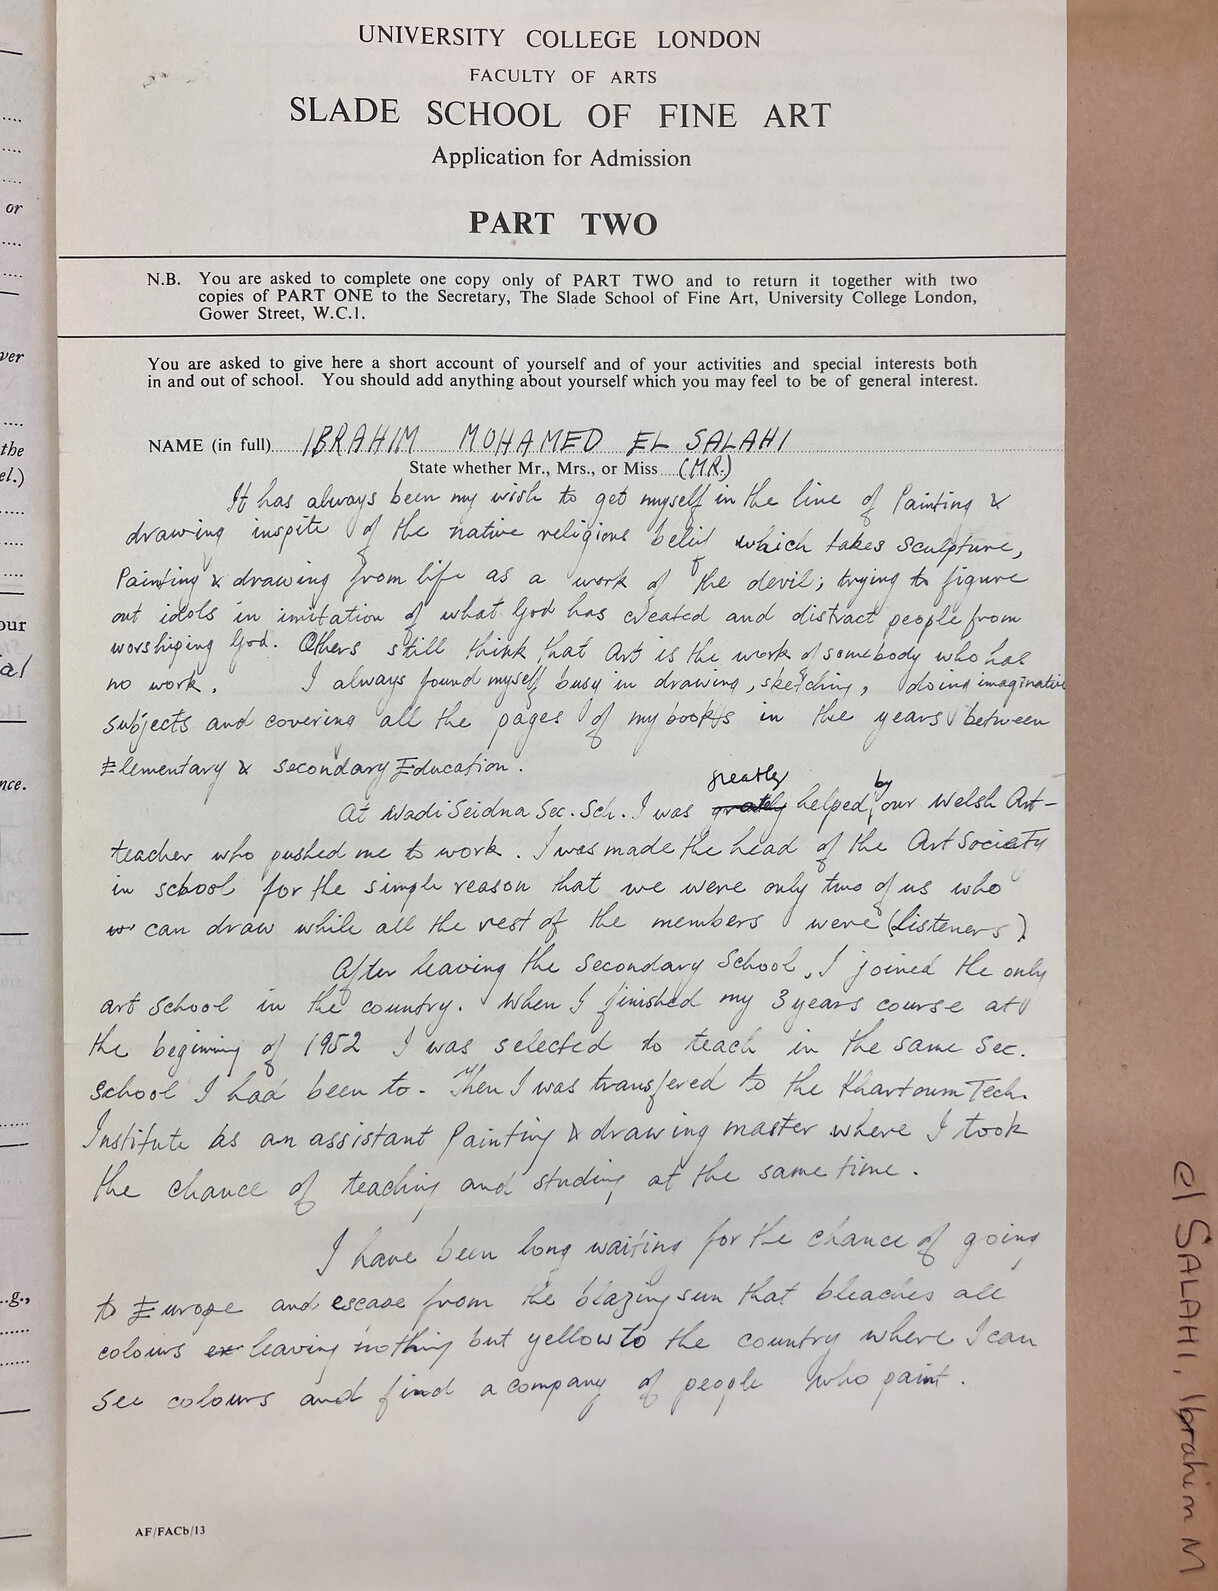 UNIVERSITY COLLEGE LONDON
FACULTY OF ARTS
SLADE SCHOOL OF FINE ART
Application for Admission
PART TWO
N.B. You are asked to complete one copy only of PART TWO and to return it together with two
copies of PART ONE to the Secretary, The Slade School of Fine Art, University College London,
Gower Street, W.C.1.
You are asked to give here a short account of yourself and of your activities and special interests both
in and out of school. You should add anything about yourself which you may feel to be of general interest.
NAME (in full) IBRAHIM MOHAMED EL SALAHI
State whether Mr., Mrs., or Miss (MR.)
It has always been my wish to get myself in the line of Painting &
drawing inspite of the native religious belief which takes Sculpture,
Painting & drawing from life as a work of the devil; trying to figure
out idols in imitation of what God has created and distract people from
worshiping God. Others still think that Art is the work of somebody who has
no work. I always found myself busy in drawing, sketching, doing imaginative
subjects and covering all the pages of my books in the years between
Elementary & secondary Education.
greatly by
At Wadi Seidna Sec. Sch. I was grately helped our Welsh Art-
teacher who pushed me to work. I was made the head of the Art Society
in school for the simple reason that we were only two of us who
can draw while all the rest of the members were (Listeners)
After leaving the Secondary School, I joined the only
art school in the country. When I finished my 3 years course at
the begining of 1952 I was selected to teach in the same Sec.
School I had been to. Then I was transfered to the Khartoum Tech.
Institute as an assistant Painting & drawing master where I took
the chance of teaching and studing at the same time.
I have been long waiting for the chance of going
to Europe and escape from the blazing sun that bleaches all
colours ex leaving nothing but yellow to the country where I can
see colours and find a company of people who paint.
AF/FACb/13
el SALAHI, Ibrahim M
or
ver
the
el.)
our
ial
nce.
.g.,